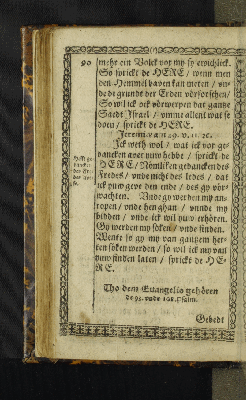 90
mehr ein Volck vor my sy ewichlick.
So sprickt de HERE / wenn men
den Hemmel baven kan meten / vn-
de de grundt der Erden vörforschen/
So wil ick ock vörwerpen dat gantze
Saedt Israel / vmme allent wat se
doen / sprickt de HERE.
Ick weth wol / wat ick vor ge-
dancken aver juw hebbe / sprickt de
HERE / Nömliken gedancken des
Fredes / vnde nicht des ledes / dat
ick juw geve den ende / des gy vör-
wachten. Vnde gy werden my an-
ropen / vnde hen ghan / vnde my
bidden / vnde ick wil juw erhören.
Gy werden my söken / vnde finden.
Wente so gy my van gantzem her-
ten söken werden / so wil ick my van
juw finden laten / sprickt de HE-
RE.
Tho dem Euangelio gehören
de 95. vnde 108. Psalm.
Gebedt